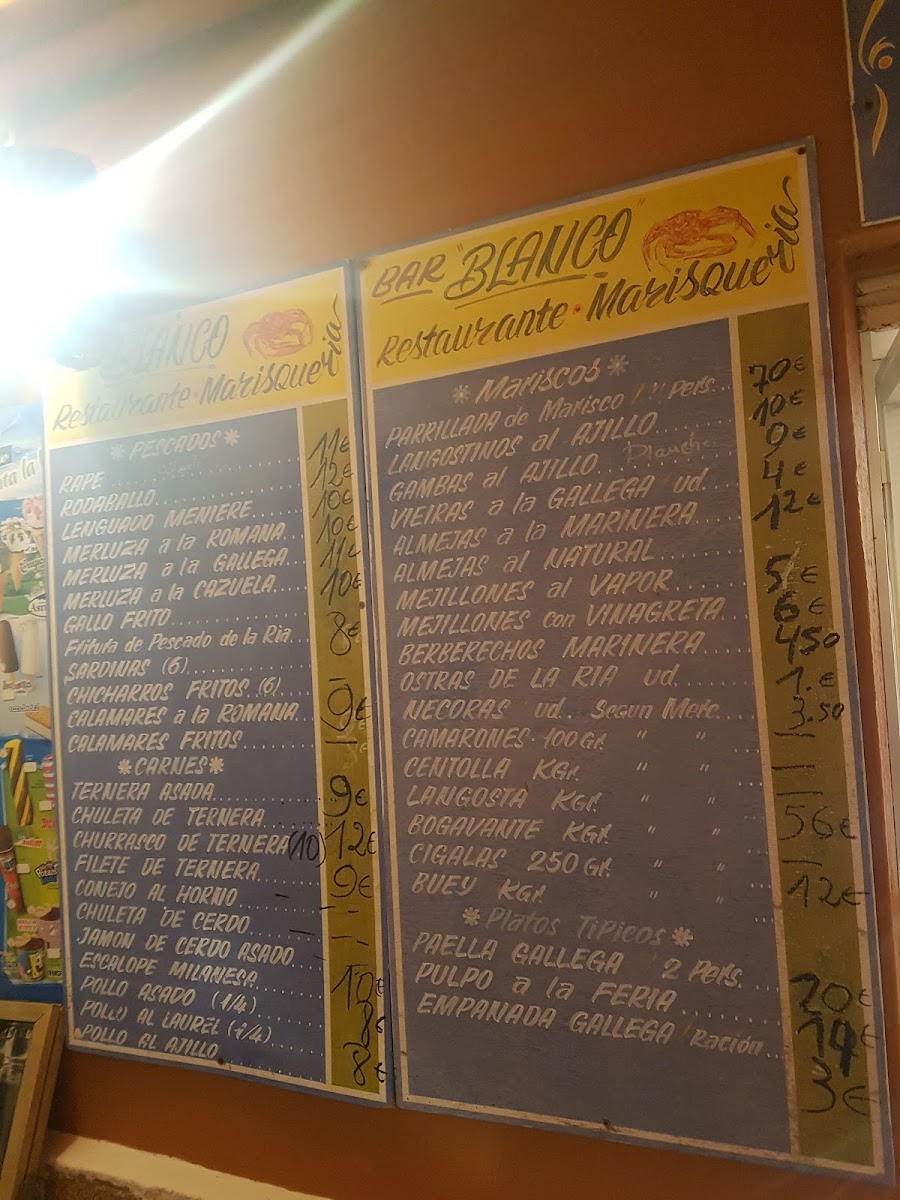 "BLANCO"
Restaurante · Marisqueria
* PESCADOS *
RAPE 11€
RODABALLO 12€
LENGUADO MENIERE 10€
MERLUZA a la ROMANA 10€
MERLUZA a la GALLEGA 11€
MERLUZA a la CAZUELA 10€
GALLO FRITO
Fritura de Pescado de la Ria 8€
SARDINAS (6)
CHICHARROS FRITOS (6)
CALAMARES a la ROMANA 9€
CALAMARES FRITOS
* CARNES *
TERNERA ASADA
CHULETA DE TERNERA 9€
CHURRASCO DE TERNERA (10) 12€
FILETE DE TERNERA 9€
CONEJO AL HORNO
CHULETA DE CERDO
JAMON DE CERDO ASADO
ESCALOPE MILANESA 10€
POLLO ASADO (1/4) 8€
POLLO AL LAUREL (1/4)
POLLO AL AJILLO 8€
BAR "BLANCO"
Restaurante · Marisqueria
* Mariscos *
PARRILLADA de Marisco Pers. 70€
LANGOSTINOS al AJILLO 10€
GAMBAS al AJILLO Plancha 9€
VIEIRAS a la GALLEGA ud. 4€
ALMEJAS a la MARINERA 12€
ALMEJAS al NATURAL
MEJILLONES al VAPOR 5€
MEJILLONES con VINAGRETA 6€
BERBERECHOS MARINERA 450
OSTRAS DE LA RIA ud. 1.€
NECORAS ud. Segun Merc. 3.50
CAMARONES 100 Gr. " " —
CENTOLLA KGr. " " —
LANGOSTA KGr. " "
BOGAVANTE KGr. " " 56€
CIGALAS 250 Gr. " " —
BUEY KGr. " " 12€
* Platos Tipicos *
PAELLA GALLEGA 2 Pers. 20€
PULPO a la FERIA 14€
EMPANADA GALLEGA Ración 3€